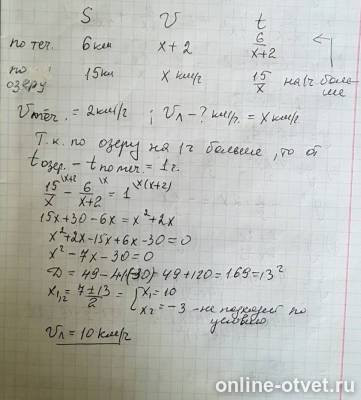 S v t
по теч. 6 км x+2 6/(x+2)
по озеру 15км x км/ч 15/x на 1ч больше
Vтеч. = 2км/ч ; Vл - ? км/ч. = x км/ч
Т.к. по озеру на 1ч больше, то от
tозер. - tпо теч. = 1 г.
15/x \x+2 - 6/(x+2) \x = 1 \x(x+2)
15x+30-6x=x²+2x
x²+2x-15x+6x-30=0
x²-7x-30=0
D=49-4·(-30)=49+120=169=13²
x₁,₂ = (7±13)/2 = { x₁=10
x₂=-3 - не подходит по условию
Vл=10 км/ч
online-otvet.ru